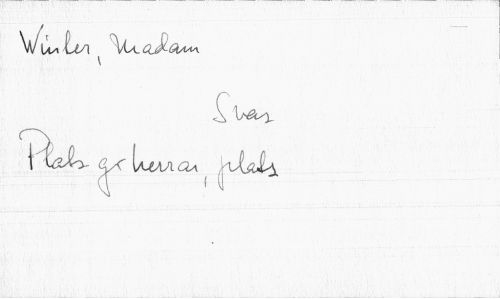 Winter, Madam
Svar
Plats gr herrar, plats